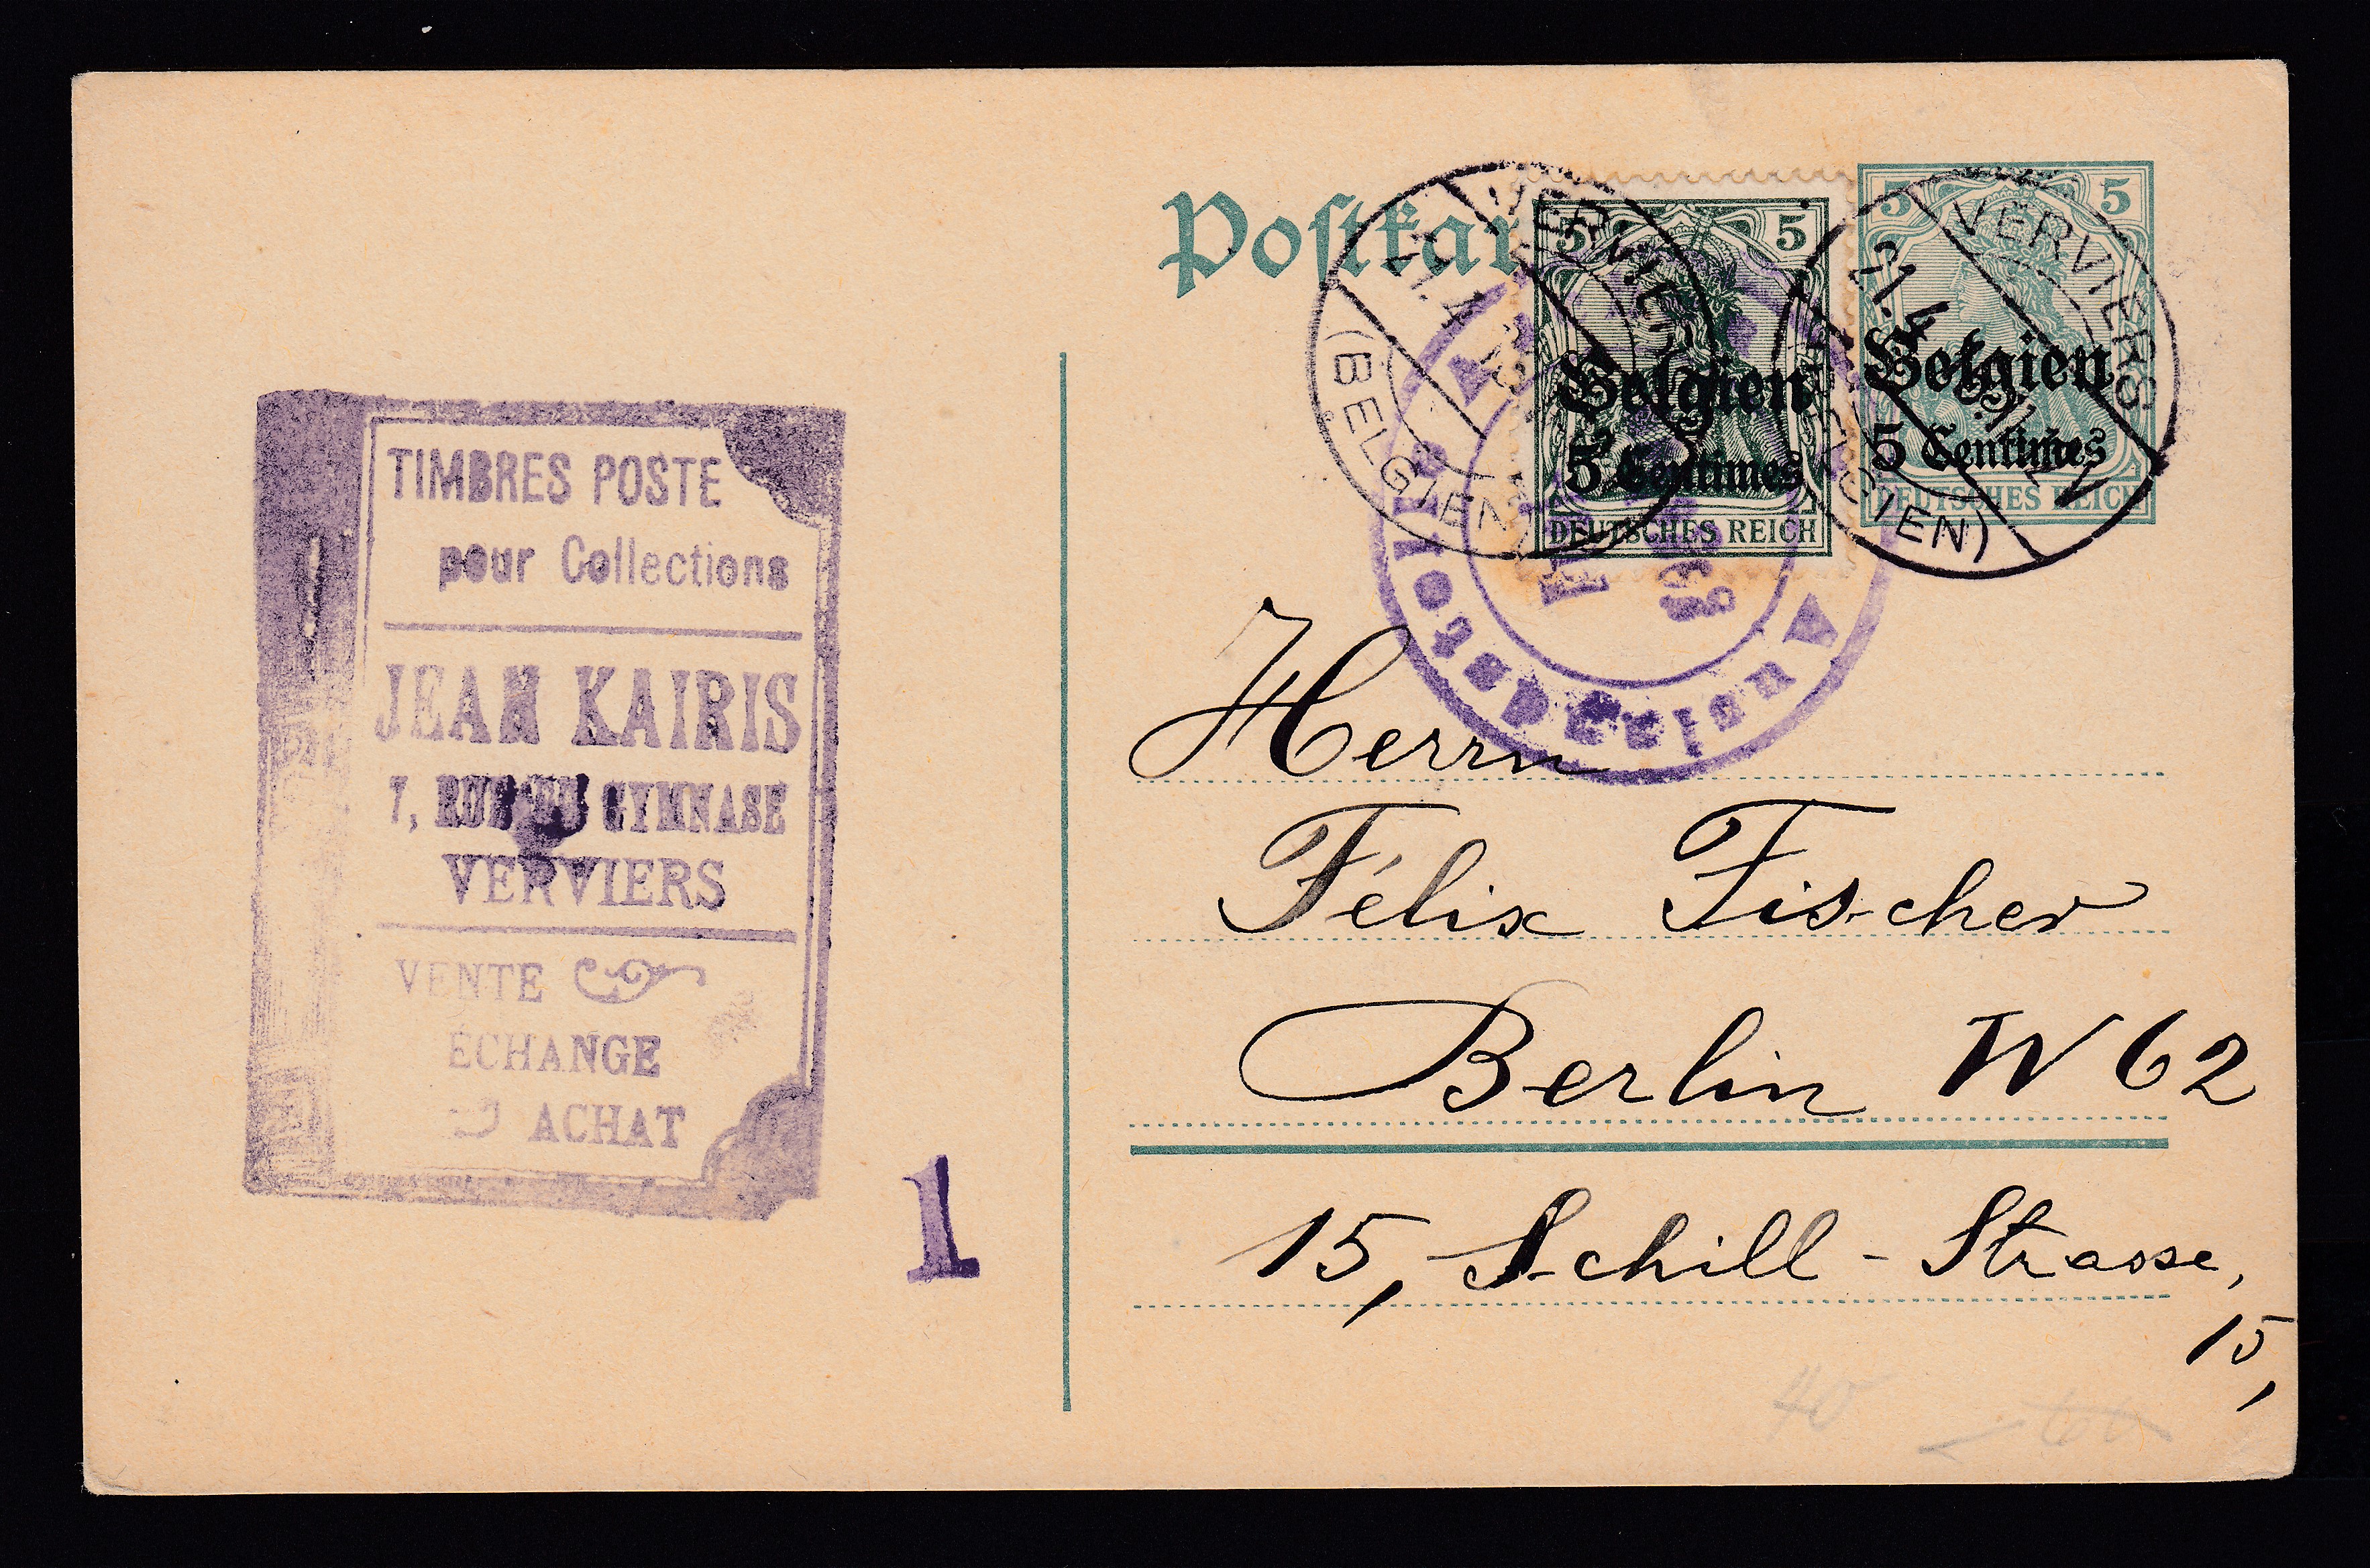 TIMBRES POSTE
pour Collections
JEAN KAIRIS
7, RUE DU GYMNASE
VERVIERS
VENTE
ÉCHANGE
ACHAT
1
Postkar
5 5
Belgien
5 Centimes
DEUTSCHES REICH
5 5
Belgien
5 Centimes
DEUTSCHES REICH
VERVIERS
(BELGIEN)
VERVIERS
21.4
(BELGIEN)
Auslandsstelle
Herrn
Félix Fischer
Berlin W 62
15, Schill-Strasse,
15,
40